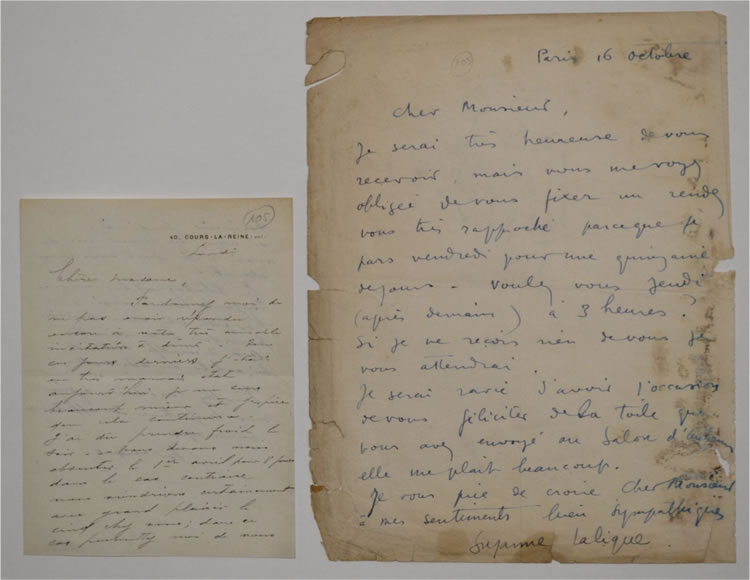 105
40, COURS-LA-REINE
Lundi
Chère madame,
Pardonnez moi de
ne pas avoir répondu
encore à votre très aimable
invitation à dîner.
ces jours derniers j'étais
en très mauvais état
aujourd'hui je me sens
beaucoup mieux et j'espère
que cela continuera.
J'ai dû prendre froid le
soir
absentes le 1er avril pour 8 jours
dans le cas contraire
nous viendrions certainement
avec grand plaisir le
cinq chez vous; dans ce
cas permettez moi de vous
105
Paris 16 octobre
Cher Monsieur,
Je serai très heureuse de vous
recevoir, mais vous me voyez
obligée de vous fixer un rendez
vous très rapproché parceque je
pars vendredi pour une quinzaine
de jours - voulez vous jeudi
(après demain) à 3 heures?
Si je ne reçois rien de vous je
vous attendrai.
Je serai ravie d'avoir l'occasion
de vous féliciter de la toile que
vous avez envoyé au Salon d'automne
elle me plait beaucoup.
Je vous prie de croire Cher Monsieur
à mes sentiments bien sympathiques
Suzanne Lalique.